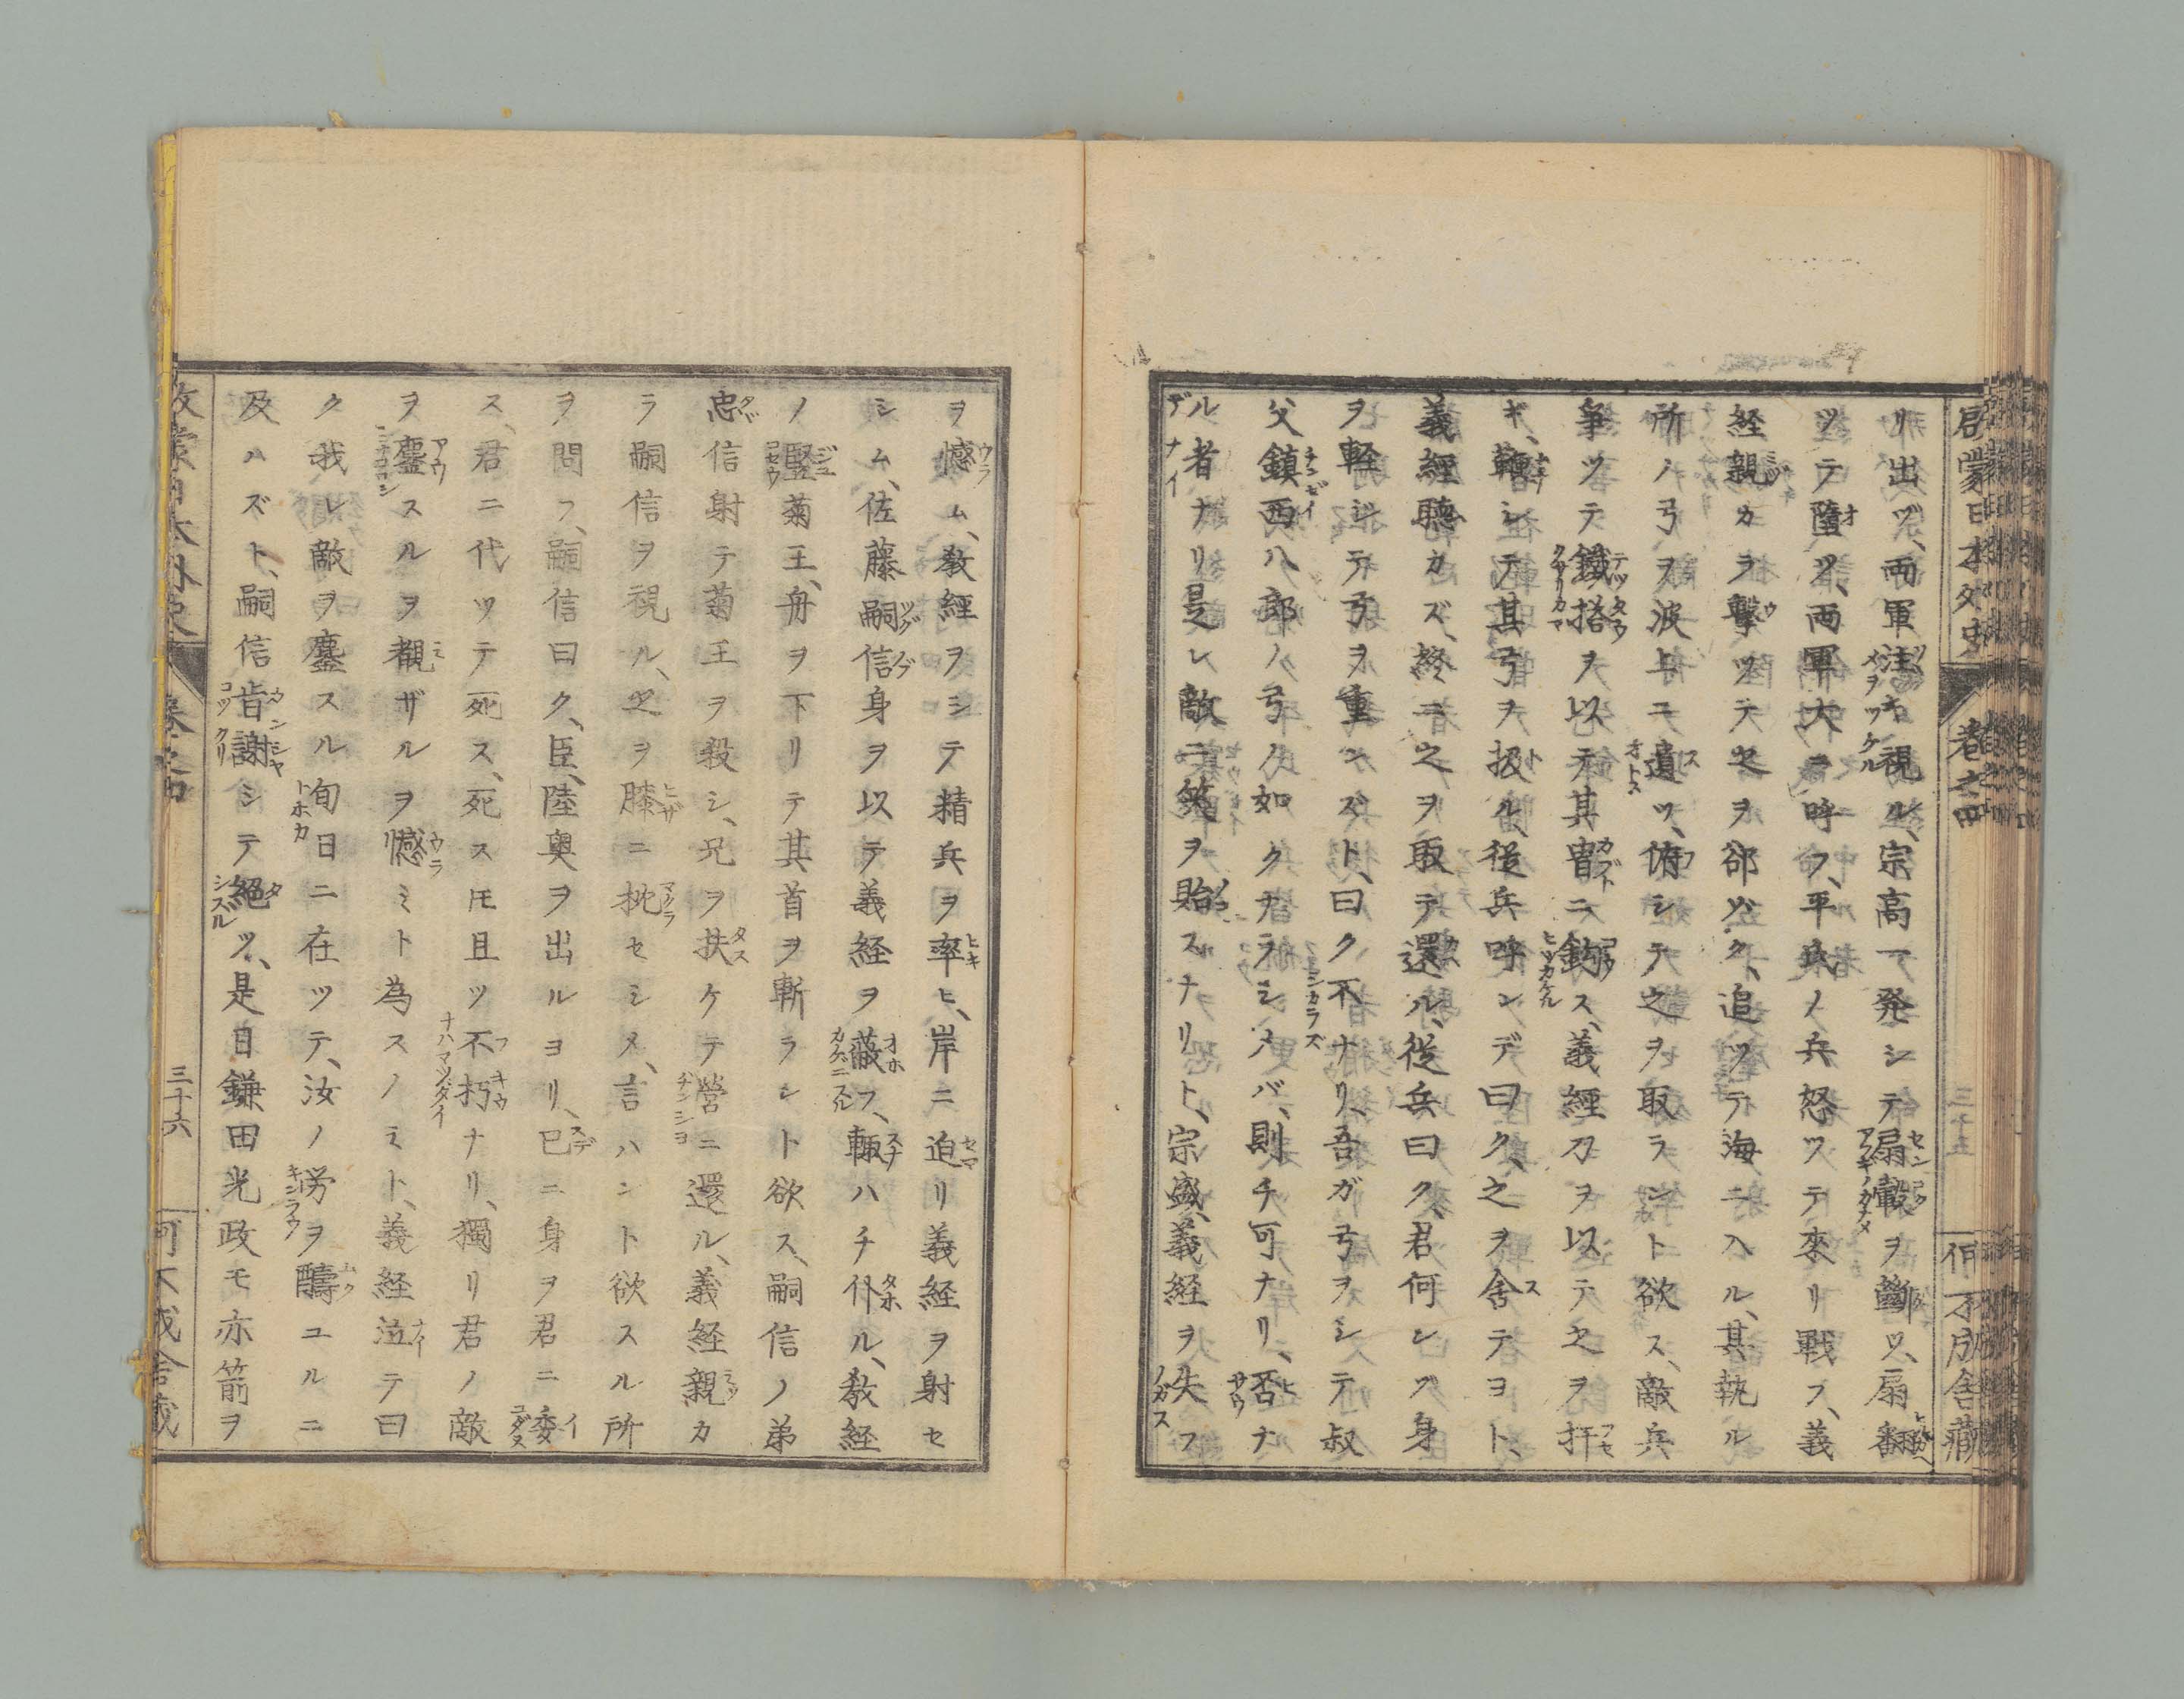 啓蒙日本外史 巻之四 三十五 何不成舎藏
リ出ツ、両軍注視ル、宗高一発シテ扇轂ヲ斷ツ、扇翻
ツテ墮ツ、両軍大ニ呼フ、平氏ノ兵怒ツテ來リ戦フ、義
経親カラ撃ツテ之ヲ郤ゾク、追ツテ海ニ入ル、其執ル
所ノ弓ヲ波上ニ遺ツ、俯シテ之ヲ取ラント欲ス、敵兵
爭ツテ鐵搭ヲ以テ其冑ニ鈎ス、義經刀ヲ以テ之ヲ扞
ギ、鞭シテ其弓ヲ扱ル、從兵呼ンデ曰ク、之ヲ舍テヨト、
義經聽カズ、終ニ之ヲ取テ還ル、從兵曰ク、君何ンツ身
ヲ軽ンシテ弓ヲ重ンズト、曰ク不ナリ、吾ガ弓ヲシテ叔
父鎮西八郎ノ弓ノ如クナラシメバ、則チ可ナリ、否ナ
ル者ナリ是レ敵ニ笑ヲ貽スナリト、宗盛義経ヲ失フ
ヲ憾ム、敎経ヲシテ精兵ヲ率ヒ、岸ニ迫リ義経ヲ射セ
シム、佐藤嗣信身ヲ以テ義経ヲ蔽フ、輙ハチ仆ル、敎経
ノ豎菊王、舟ヲ下リテ其首ヲ斬ラント欲ス、嗣信ノ弟
忠信射テ菊王ヲ殺シ、兄ヲ扶ケテ營ニ還ル、義経親カ
ラ嗣信ヲ視ル、之ヲ膝ニ枕セシメ、言ハント欲スル所
ヲ問フ、嗣信曰ク、臣、陸奥ヲ出ルヨリ、已ニ身ヲ君ニ委
ス、君ニ代ツテ死ス、死スモ且ツ不朽ナリ、獨リ君ノ敵
ヲ鏖スルヲ覩ザルヲ憾ミト為スノミト、義経泣テ曰
ク我レ敵ヲ鏖スル旬日ニ在ツテ、汝ノ労ヲ酬ユルニ
及ハズト、嗣信肯謝シテ絕ツ、是日鎌田光政モ亦箭ヲ
啓蒙日本外史 巻之四 三十六 何不成舎藏